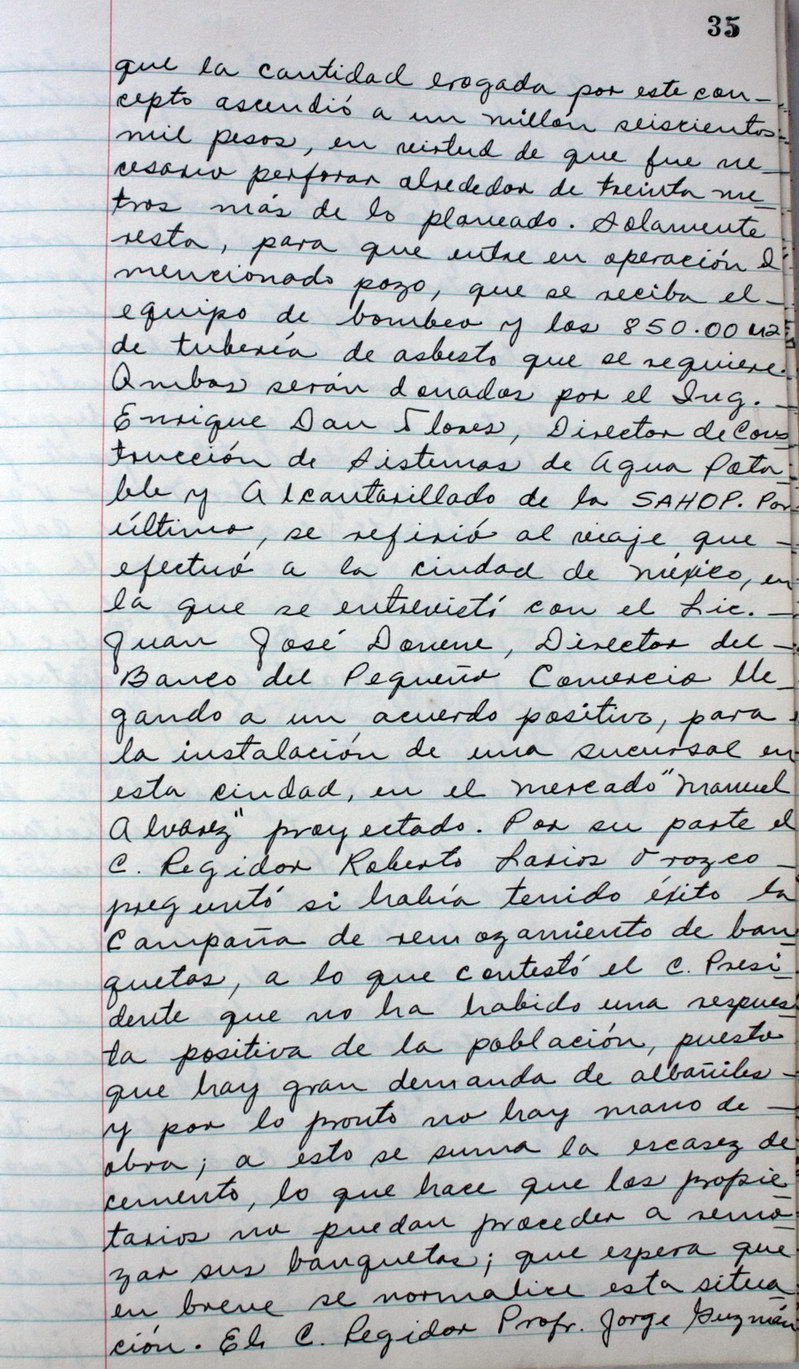 35
que la cantidad erogada por este con-
cepto ascendió a un millón seiscientos
mil pesos, en virtud de que fue ne-
cesario perforar alrededor de treinta me-
tros más de lo planeado. Solamente
resta, para que entre en operación el
mencionado pozo, que se reciba el-
equipo de bombeo y los 850.00
de tubería de asbesto que se requiere.
Ambos serán donados por el Ing. -
Enrique Dau Flores, Director de Cons
trucción de Sistemas de Agua Pota
ble y Alcantarillado de la SAHOP. Por
último, se refirió al viaje que -
efectuó a la ciudad de México, en
la que se entrevistó con el Lic. -
Juan José Donene, Director del -
Banco del Pequeño Comercio lle-
gando a un acuerdo positivo, para
la instalación de una sucursal en
esta ciudad, en el mercado "Manuel
Alvarez" proyectado. Por su parte el
C. Regidor Roberto Larios Orozco -
preguntó si había tenido éxito la
Campaña de remozamiento de ban
quetas, a lo que contestó el C. Presi-
dente que no ha habido una respues
ta positiva de la población, puesto
que hay gran demanda de albañiles -
y por lo pronto no hay mano de -
obra; a esto se suma la escasez de
cemento, lo que hace que los propie-
tarios no puedan proceder a remo-
zar sus banquetas; que espera que
en breve se normalice esta situa-
ción. El C. Regidor Profr. Jorge Guzmán